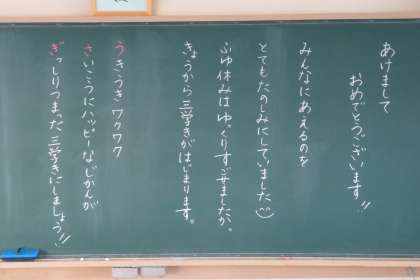 あけまして
おめでとうございます!!
みんなにあえるのを
とてもたのしみにしていました
ふゆ休みはゆっくりすごせましたか。
きょうから三学きがはじまります。
うきうきワクワク
さいこうにハッピーなじかんが
ぎっしりつまった三学きにしましょう!!